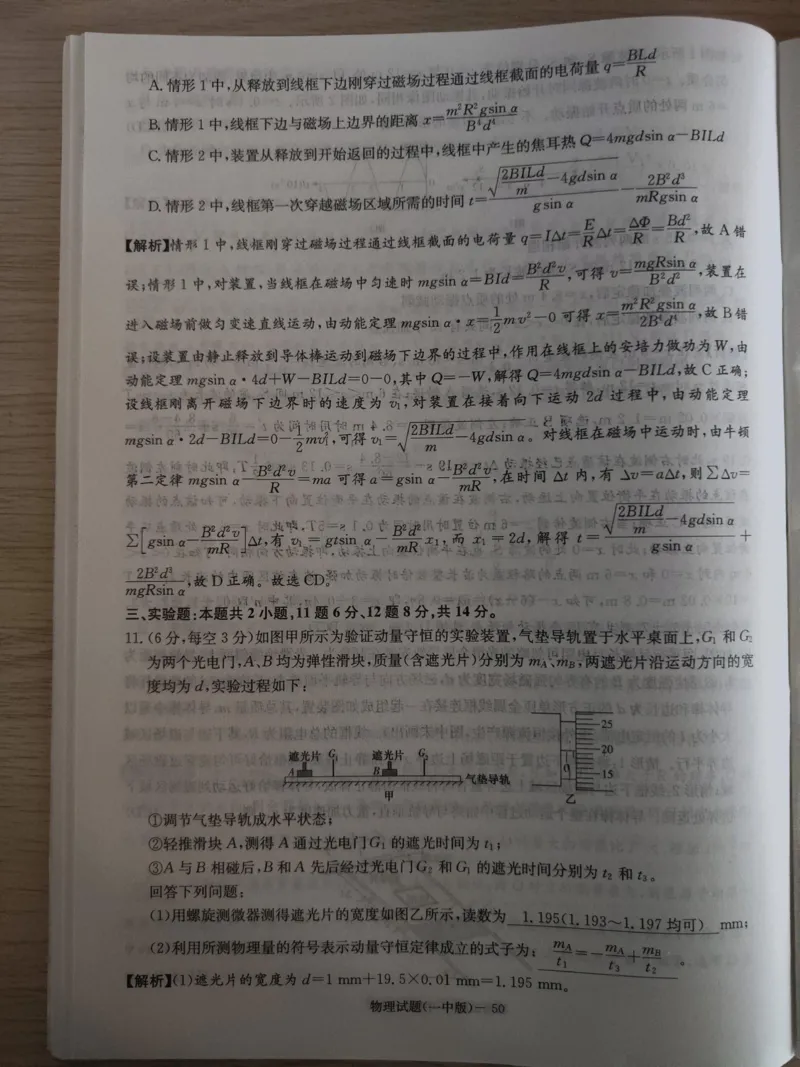 A.情形1中,从释放到线框下边刚穿过磁场过程通过线框截面的电荷量 q=BLd/R
B.情形1中,线框下边与磁场上边界的距离 x=m²R²gsin α/B⁴d⁴
C.情形2中,装置从释放到开始返回的过程中,线框中产生的焦耳热 Q=4mgdsin α-BILd
D.情形2中,线框第一次穿越磁场区域所需的时间 t=√(2BILd/m-4gdsin α)/gsin α-2B²d³/mRgsin α
【解析】情形1中,线框刚穿过磁场过程通过线框截面的电荷量 q=IΔt=E/RΔt=ΔΦ/R=Bd²/R,故A错
误;情形1中,对装置,当线框在磁场中匀速时 mgsin α=BId=B²d²v/R,可得 v=mgRsin α/B²d²,装置在
进入磁场前做匀变速直线运动,由动能定理 mgsin α·x=1/2mv²-0 可得 x=m²R²gsin α/2B⁴d⁴,故B错
误;设装置由静止释放到导体棒运动到磁场下边界的过程中,作用在线框上的安培力做功为W,由
动能定理 mgsin α·4d+W-BILd=0-0,其中 Q=-W,解得 Q=4mgdsin α-BILd,故C正确;
设线框刚离开磁场下边界时的速度为 v₁,对装置在接着向下运动 2d 过程中,由动能定理
mgsin α·2d-BILd=0-1/2mv₁²,可得 v₁=√(2BILd/m-4gdsin α)。对线框在磁场中运动时,由牛顿
第二定律 mgsin α-B²d²v/R=ma 可得 a=gsin α-B²d²v/mR,在时间 Δt 内,有 Δv=aΔt,则∑Δv=
∑[gsin α-B²d²v/mR]Δt,有 v₁=gtsin α-B²d²/mR x₁,而 x₁=2d,解得 t=√(2BILd/m-4gdsin α)/gsin α+
2B²d³/mgRsin α,故D正确。故选CD。
三、实验题:本题共2小题,11题6分、12题8分,共14分。
11.(6分,每空3分)如图甲所示为验证动量守恒的实验装置,气垫导轨置于水平桌面上,G₁ 和 G₂
为两个光电门,A、B均为弹性滑块,质量(含遮光片)分别为 mA、mB,两遮光片沿运动方向的宽
度均为 d,实验过程如下:
遮光片 G₁ 遮光片 G₂
A B 气垫导轨
甲
25
20
15
0
乙
①调节气垫导轨成水平状态;
②轻推滑块A,测得A通过光电门G₁ 的遮光时间为 t₁;
③A与B相碰后,B和A先后经过光电门G₂ 和 G₁ 的遮光时间分别为 t₂ 和 t₃。
回答下列问题:
(1)用螺旋测微器测得遮光片的宽度如图乙所示,读数为 1.195(1.193～1.197均可) mm;
(2)利用所测物理量的符号表示动量守恒定律成立的式子为: mA/t₁=-mA/t₃+mB/t₂。
【解析】(1)遮光片的宽度为 d=1 mm+19.5×0.01 mm=1.195 mm。
物理试题(一中版)－50